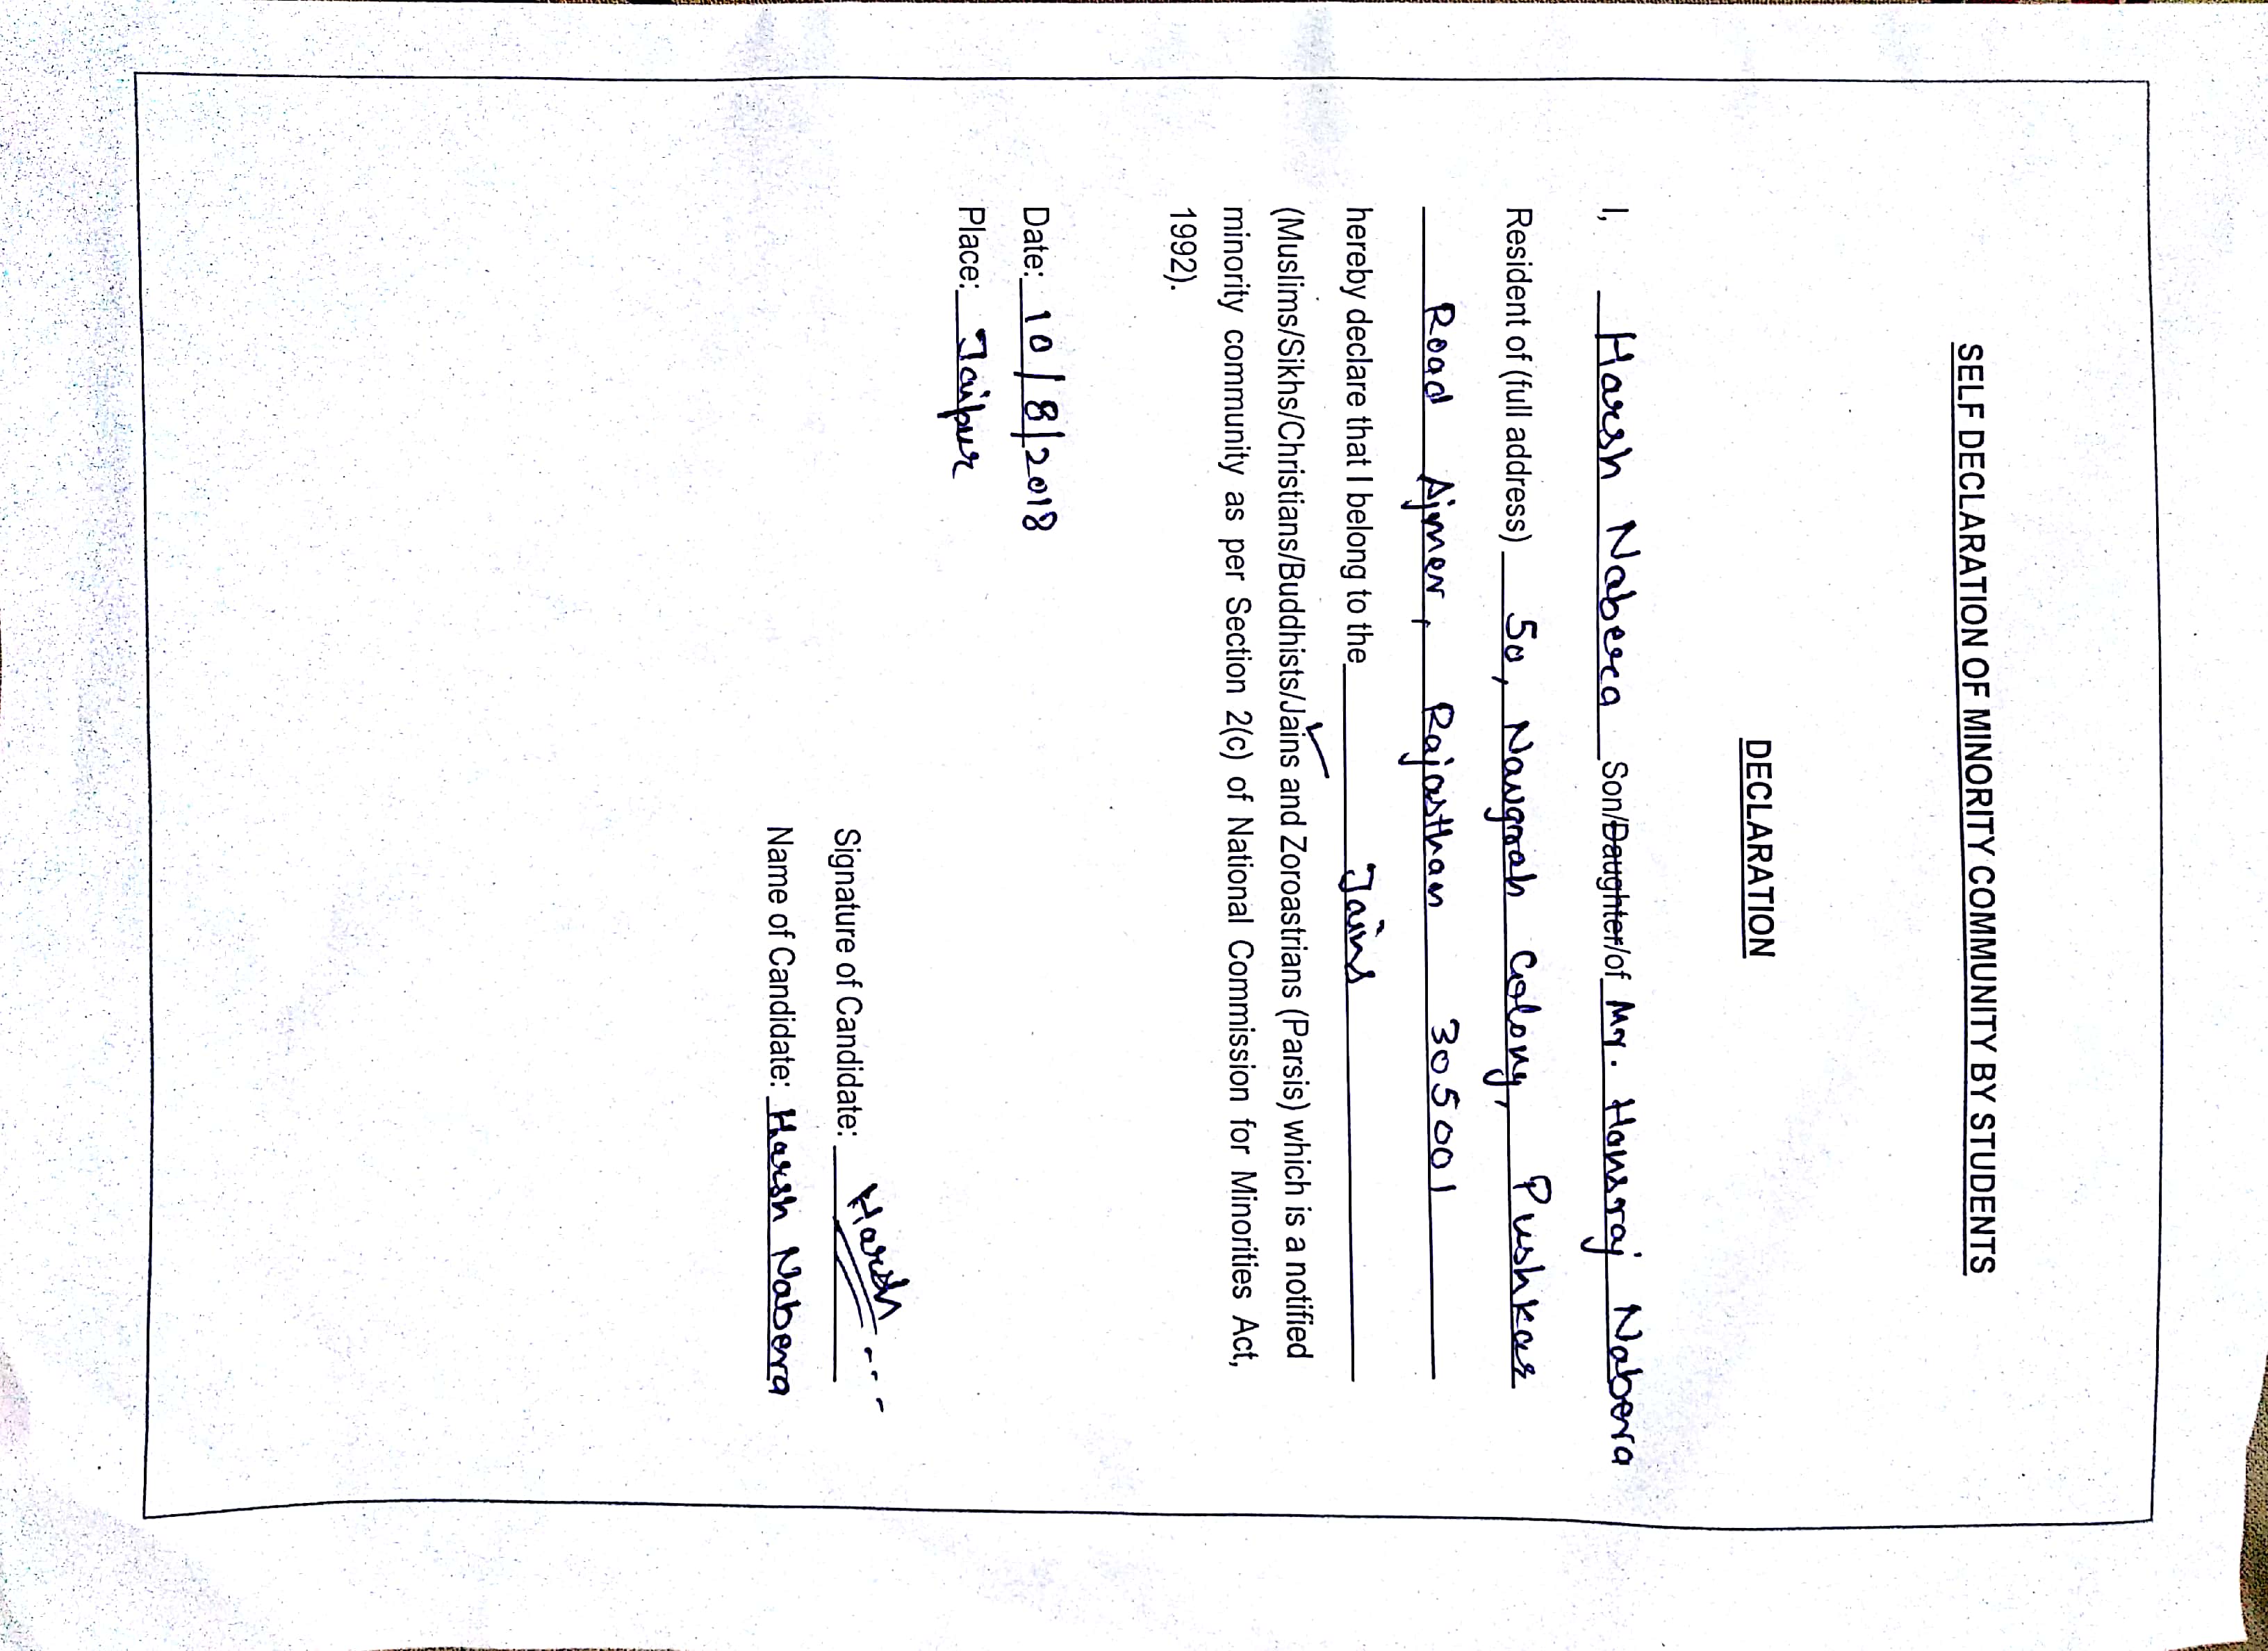 SELF DECLARATION OF MINORITY COMMUNITY BY STUDENTS
DECLARATION
I, Harsh Nabera Son/Daughter/of Mr. Hansraj Nabera
Resident of (full address) 50, Navgrah Colony, Pushkar
Road Ajmer, Rajasthan 305001
hereby declare that I belong to the Jains
(Muslims/Sikhs/Christians/Buddhists/Jains and Zoroastrians (Parsis) which is a notified
minority community as per Section 2(c) of National Commission for Minorities Act,
1992).
Date: 10/8/2018
Place: Jaipur
Signature of Candidate: Harsh
Name of Candidate: Harsh Nabera